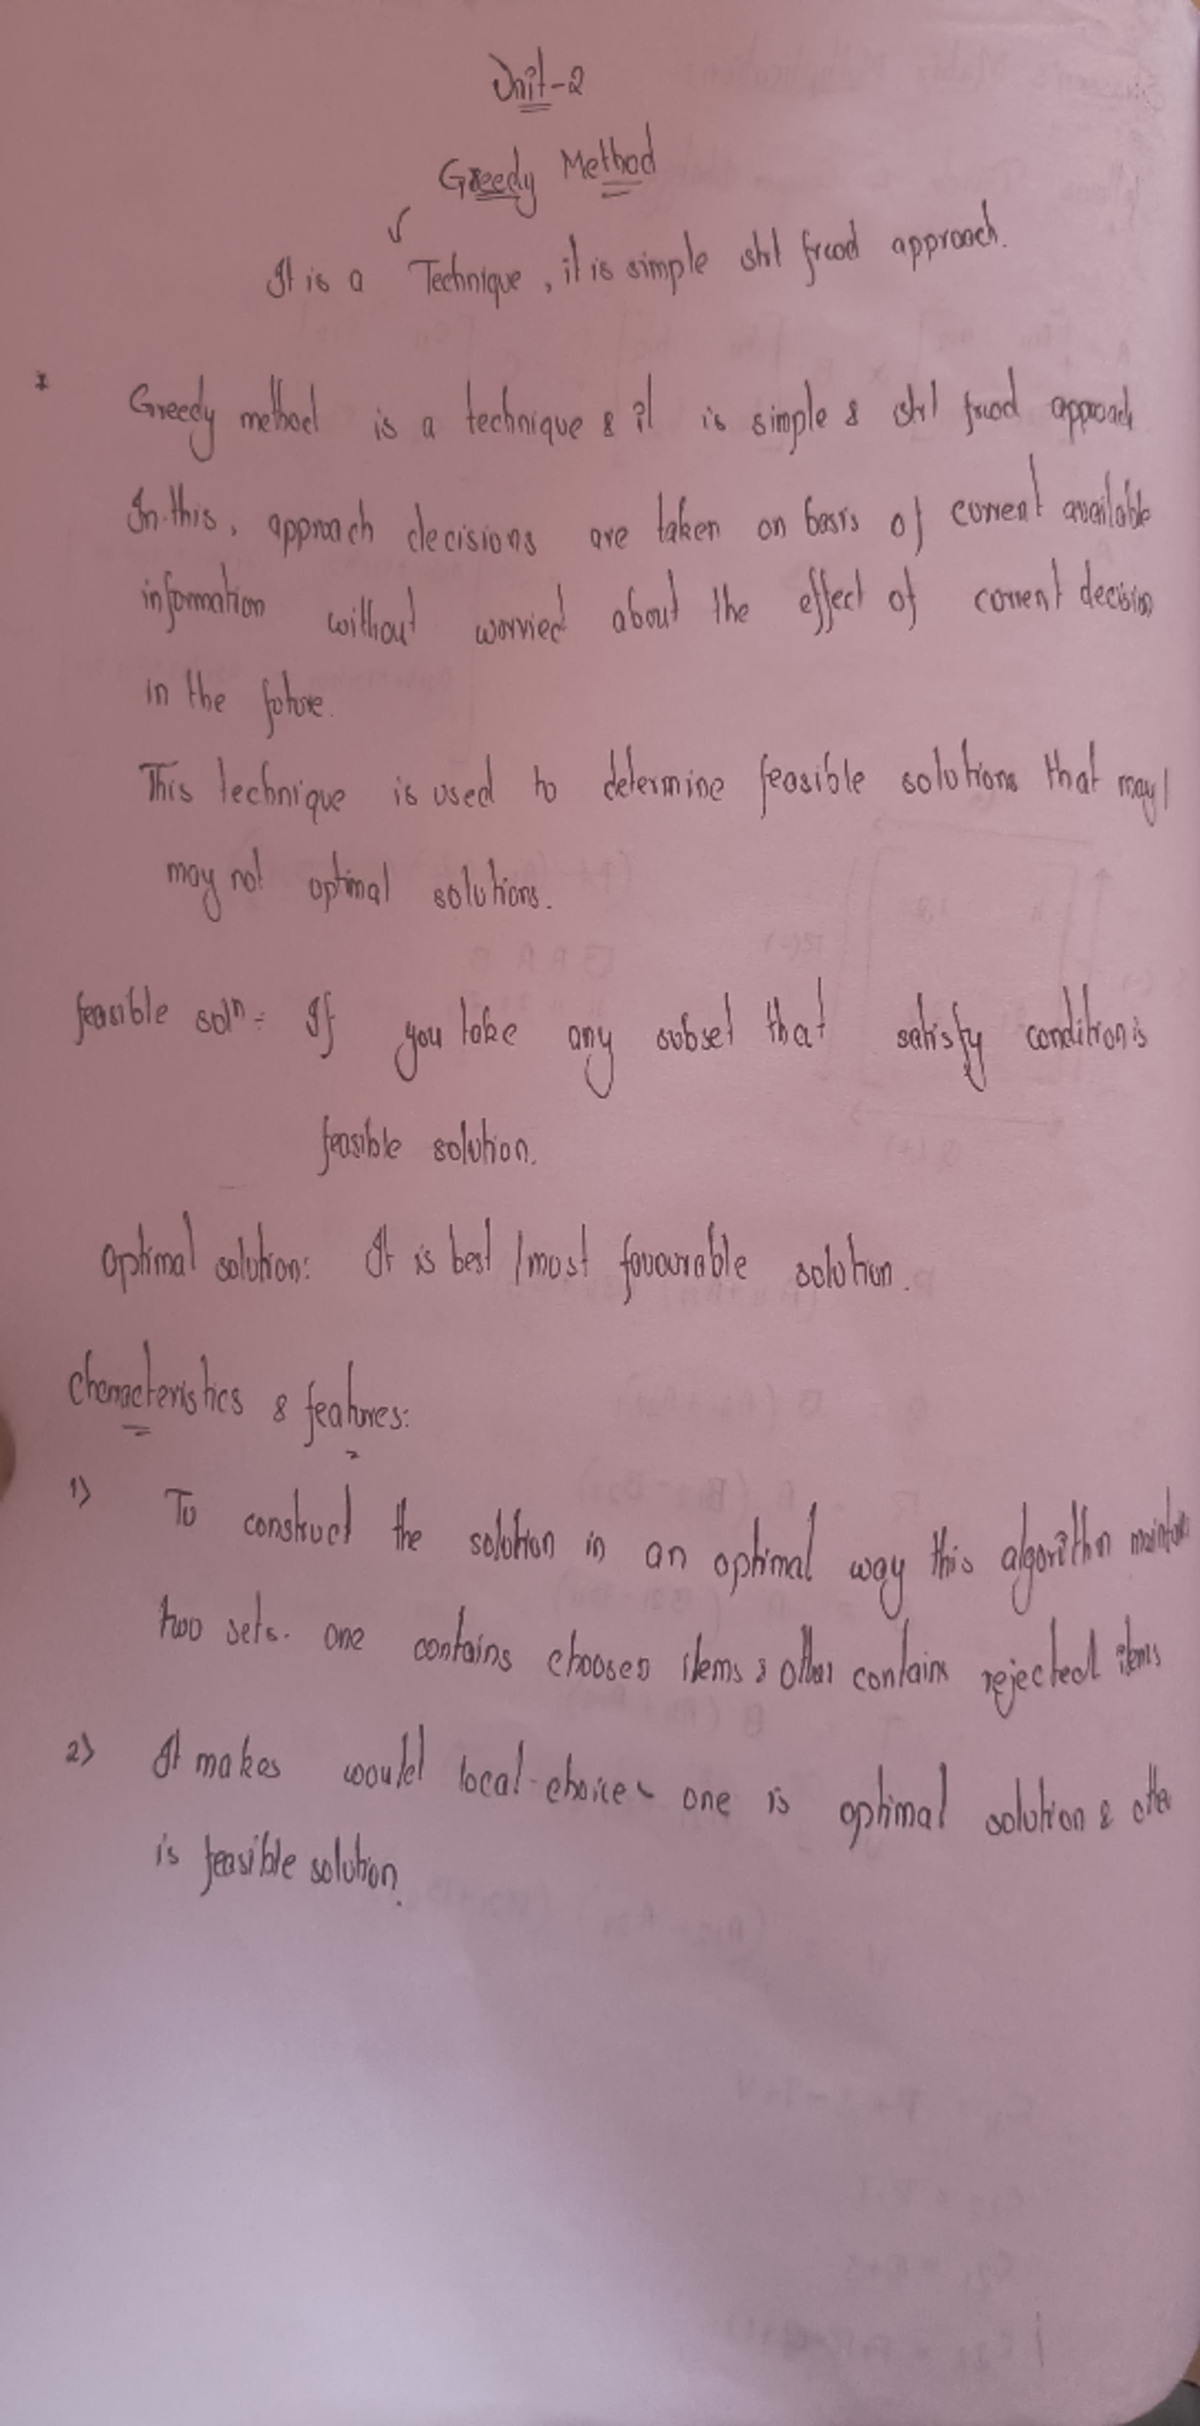 Unit-2
Greedy Method
It is a Technique, it is simple sht frwd approach.
Greedy method is a technique & it is simple & sht frwd approach
In this, approach decisions are taken on basis of current available
information without worried about the effect of current decision
in the future.
This technique is used to determine feasible solutions that may/
may not optimal solutions.
feasible solⁿ: If you take any subset that satisfy condition is
feasible solution.
Optimal solution: It is best /most favourable solution.
Characteristics & features:
1) To construct the solution in an optimal way this algorithm maintains
two sets. one contains choosen items & other contains rejected items
2) It makes would local choice one is optimal solution & other
is feasible solution.